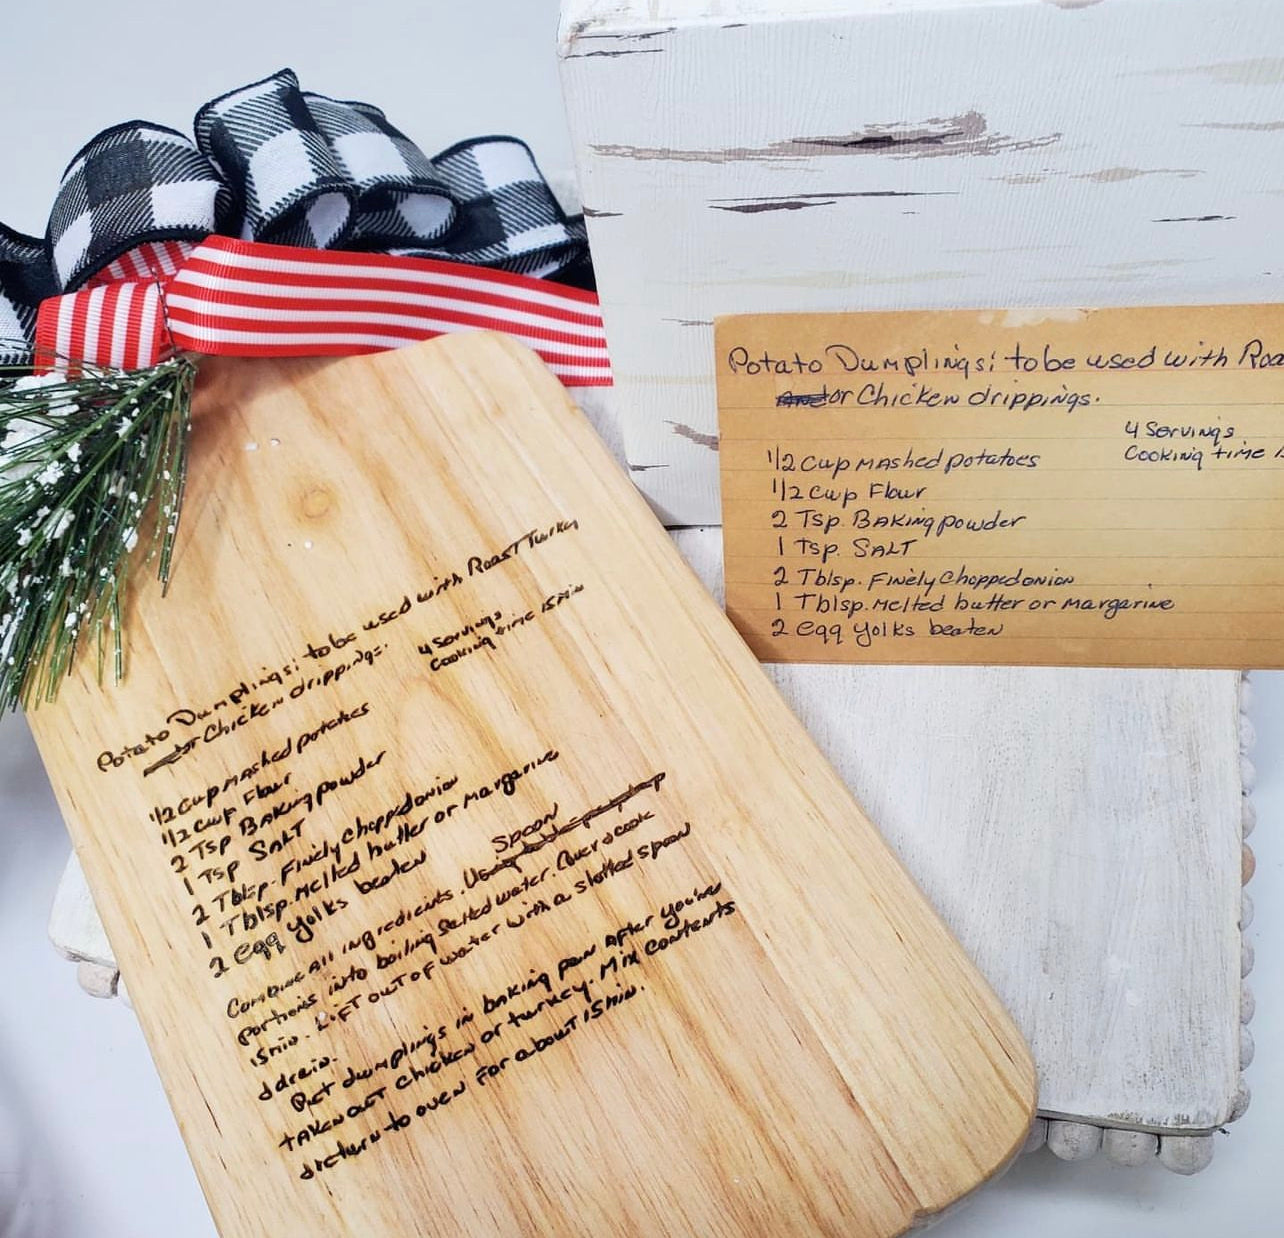 Potato Dumplings: to be used with Roast Turkey
or Chicken drippings.
4 Servings
Cooking time 15 min
1/2 Cup mashed potatoes
1/2 Cup Flour
2 Tsp Baking powder
1 Tsp SALT
2 Tblsp. Finely Chopped onion
1 Tblsp. Melted butter or Margarine
2 egg yolks beaten
Spoon
Combine all ingredients. Using
portions into boiling salted water. Cover & cook
15 min. Lift out of water with a slotted spoon
& drain.
Put dumplings in baking pan after you've
taken out chicken or turkey. Mix contents
& return to oven for about 15 min.
Potato Dumplings: to be used with Roa
and or Chicken drippings.
4 Servings
Cooking time 15
1/2 Cup mashed potatoes
1/2 Cup Flour
2 Tsp. Baking powder
1 Tsp. SALT
2 Tblsp. Finely Chopped onion
1 Tblsp. Melted butter or Margarine
2 egg yolks beaten